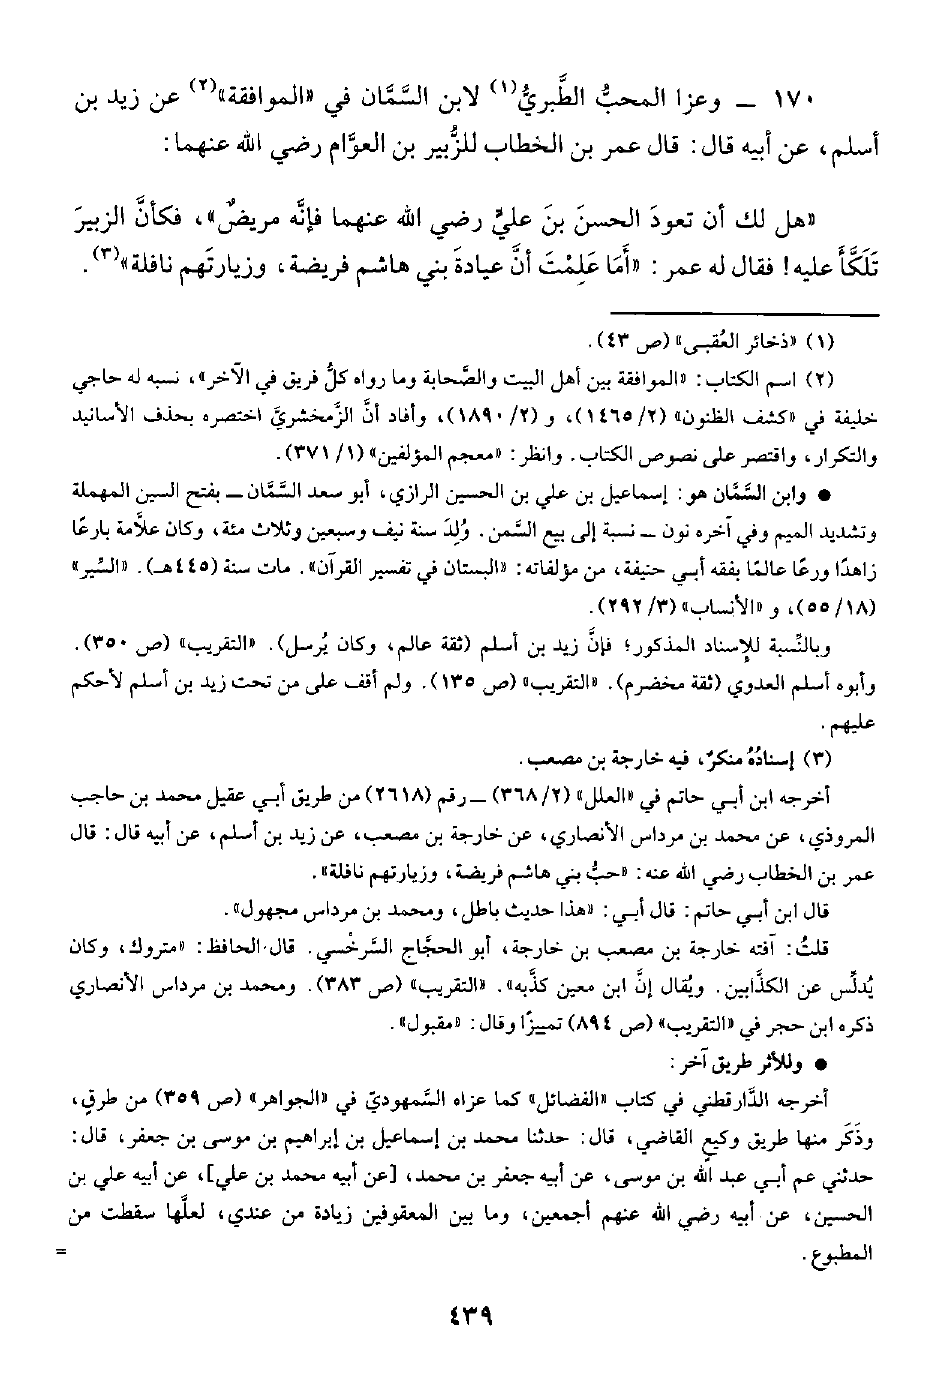 ١٧٠ ــ وعزا المحبُّ الطَّبريُّ(١) لابن السَّمَّان في «الموافقة»(٢) عن زيد بن
أسلم، عن أبيه قال: قال عمر بن الخطاب للزُّبير بن العوَّام رضي الله عنهما:
«هل لك أن تعودَ الحسنَ بنَ عليٍّ رضي الله عنهما فإنَّه مريضٌ»، فكأنَّ الزبيرَ
تَلَكَّأَ عليه! فقال له عمر: «أَمَا عَلِمْتَ أنَّ عيادةَ بني هاشم فريضة، وزيارتَهم نافلة»(٣).
(١) «ذخائر العُقبى» (ص ٤٣).
(٢) اسم الكتاب: «الموافقة بين أهل البيت والصَّحابة وما رواه كلُّ فريق في الآخر»، نسبه له حاجي
خليفة في «كشف الظنون» (٢/١٤٦٥)، و (٢/١٨٩٠)، وأفاد أنَّ الزَّمخشريَّ اختصره بحذف الأسانيد
والتكرار، واقتصر على نصوص الكتاب. وانظر: «معجم المؤلفين» (١/٣٧١).
● وابن السَّمَّان هو: إسماعيل بن علي بن الحسين الرازي، أبو سعد السَّمَّان ــ بفتح السين المهملة
وتشديد الميم وفي آخره نون ــ نسبة إلى بيع السَّمن. وُلِدَ سنة نيف وسبعين وثلاث مئة، وكان علاَّمة بارعًا
زاهدًا ورعًا عالمًا بفقه أبي حنيفة، من مؤلفاته: «البستان في تفسير القرآن». مات سنة (٤٤٥هـ). «السِّير»
(١٨/٥٥)، و «الأنساب» (٣/٢٩٢).
وبالنِّسبة للإسناد المذكور؛ فإنَّ زيد بن أسلم (ثقة عالم، وكان يُرسل). «التقريب» (ص ٣٥٠).
وأبوه أسلم العدوي (ثقة مخضرم). «التقريب» (ص ١٣٥). ولم أقف على من تحت زيد بن أسلم لأحكم
عليهم.
(٣) إسنادُهُ منكرٌ، فيه خارجة بن مصعب.
أخرجه ابن أبي حاتم في «العلل» (٢/٣٦٨) ــ رقم (٢٦١٨) من طريق أبي عقيل محمد بن حاجب
المروذي، عن محمد بن مرداس الأنصاري، عن خارجة بن مصعب، عن زيد بن أسلم، عن أبيه قال: قال
عمر بن الخطاب رضي الله عنه: «حبُّ بني هاشم فريضة، وزيارتهم نافلة».
قال ابن أبي حاتم: قال أبي: «هذا حديث باطل، ومحمد بن مرداس مجهول».
قلتُ: آفته خارجة بن مصعب بن خارجة، أبو الحجَّاج السَّرخْسي. قال الحافظ: «متروك، وكان
يُدلِّس عن الكذَّابين. ويُقال إنَّ ابن معين كذَّبه». «التقريب» (ص ٣٨٣). ومحمد بن مرداس الأنصاري
ذكره ابن حجر في «التقريب» (ص ٨٩٤) تمييزًا وقال: «مقبول».
● وللأثر طريق آخر:
أخرجه الدَّارقطني في كتاب «الفضائل» كما عزاه السَّمهوديّ في «الجواهر» (ص ٣٥٩) من طرقٍ،
وذَكَر منها طريق وكيعٍ القاضي، قال: حدثنا محمد بن إسماعيل بن إبراهيم بن موسى بن جعفر، قال:
حدثني عم أبي عبد الله بن موسى، عن أبيه جعفر بن محمد، [عن أبيه محمد بن علي]، عن أبيه علي بن
الحسين، عن أبيه رضي الله عنهم أجمعين، وما بين المعقوفين زيادة من عندي، لعلَّها سقطت من
المطبوع. =
٤٣٩